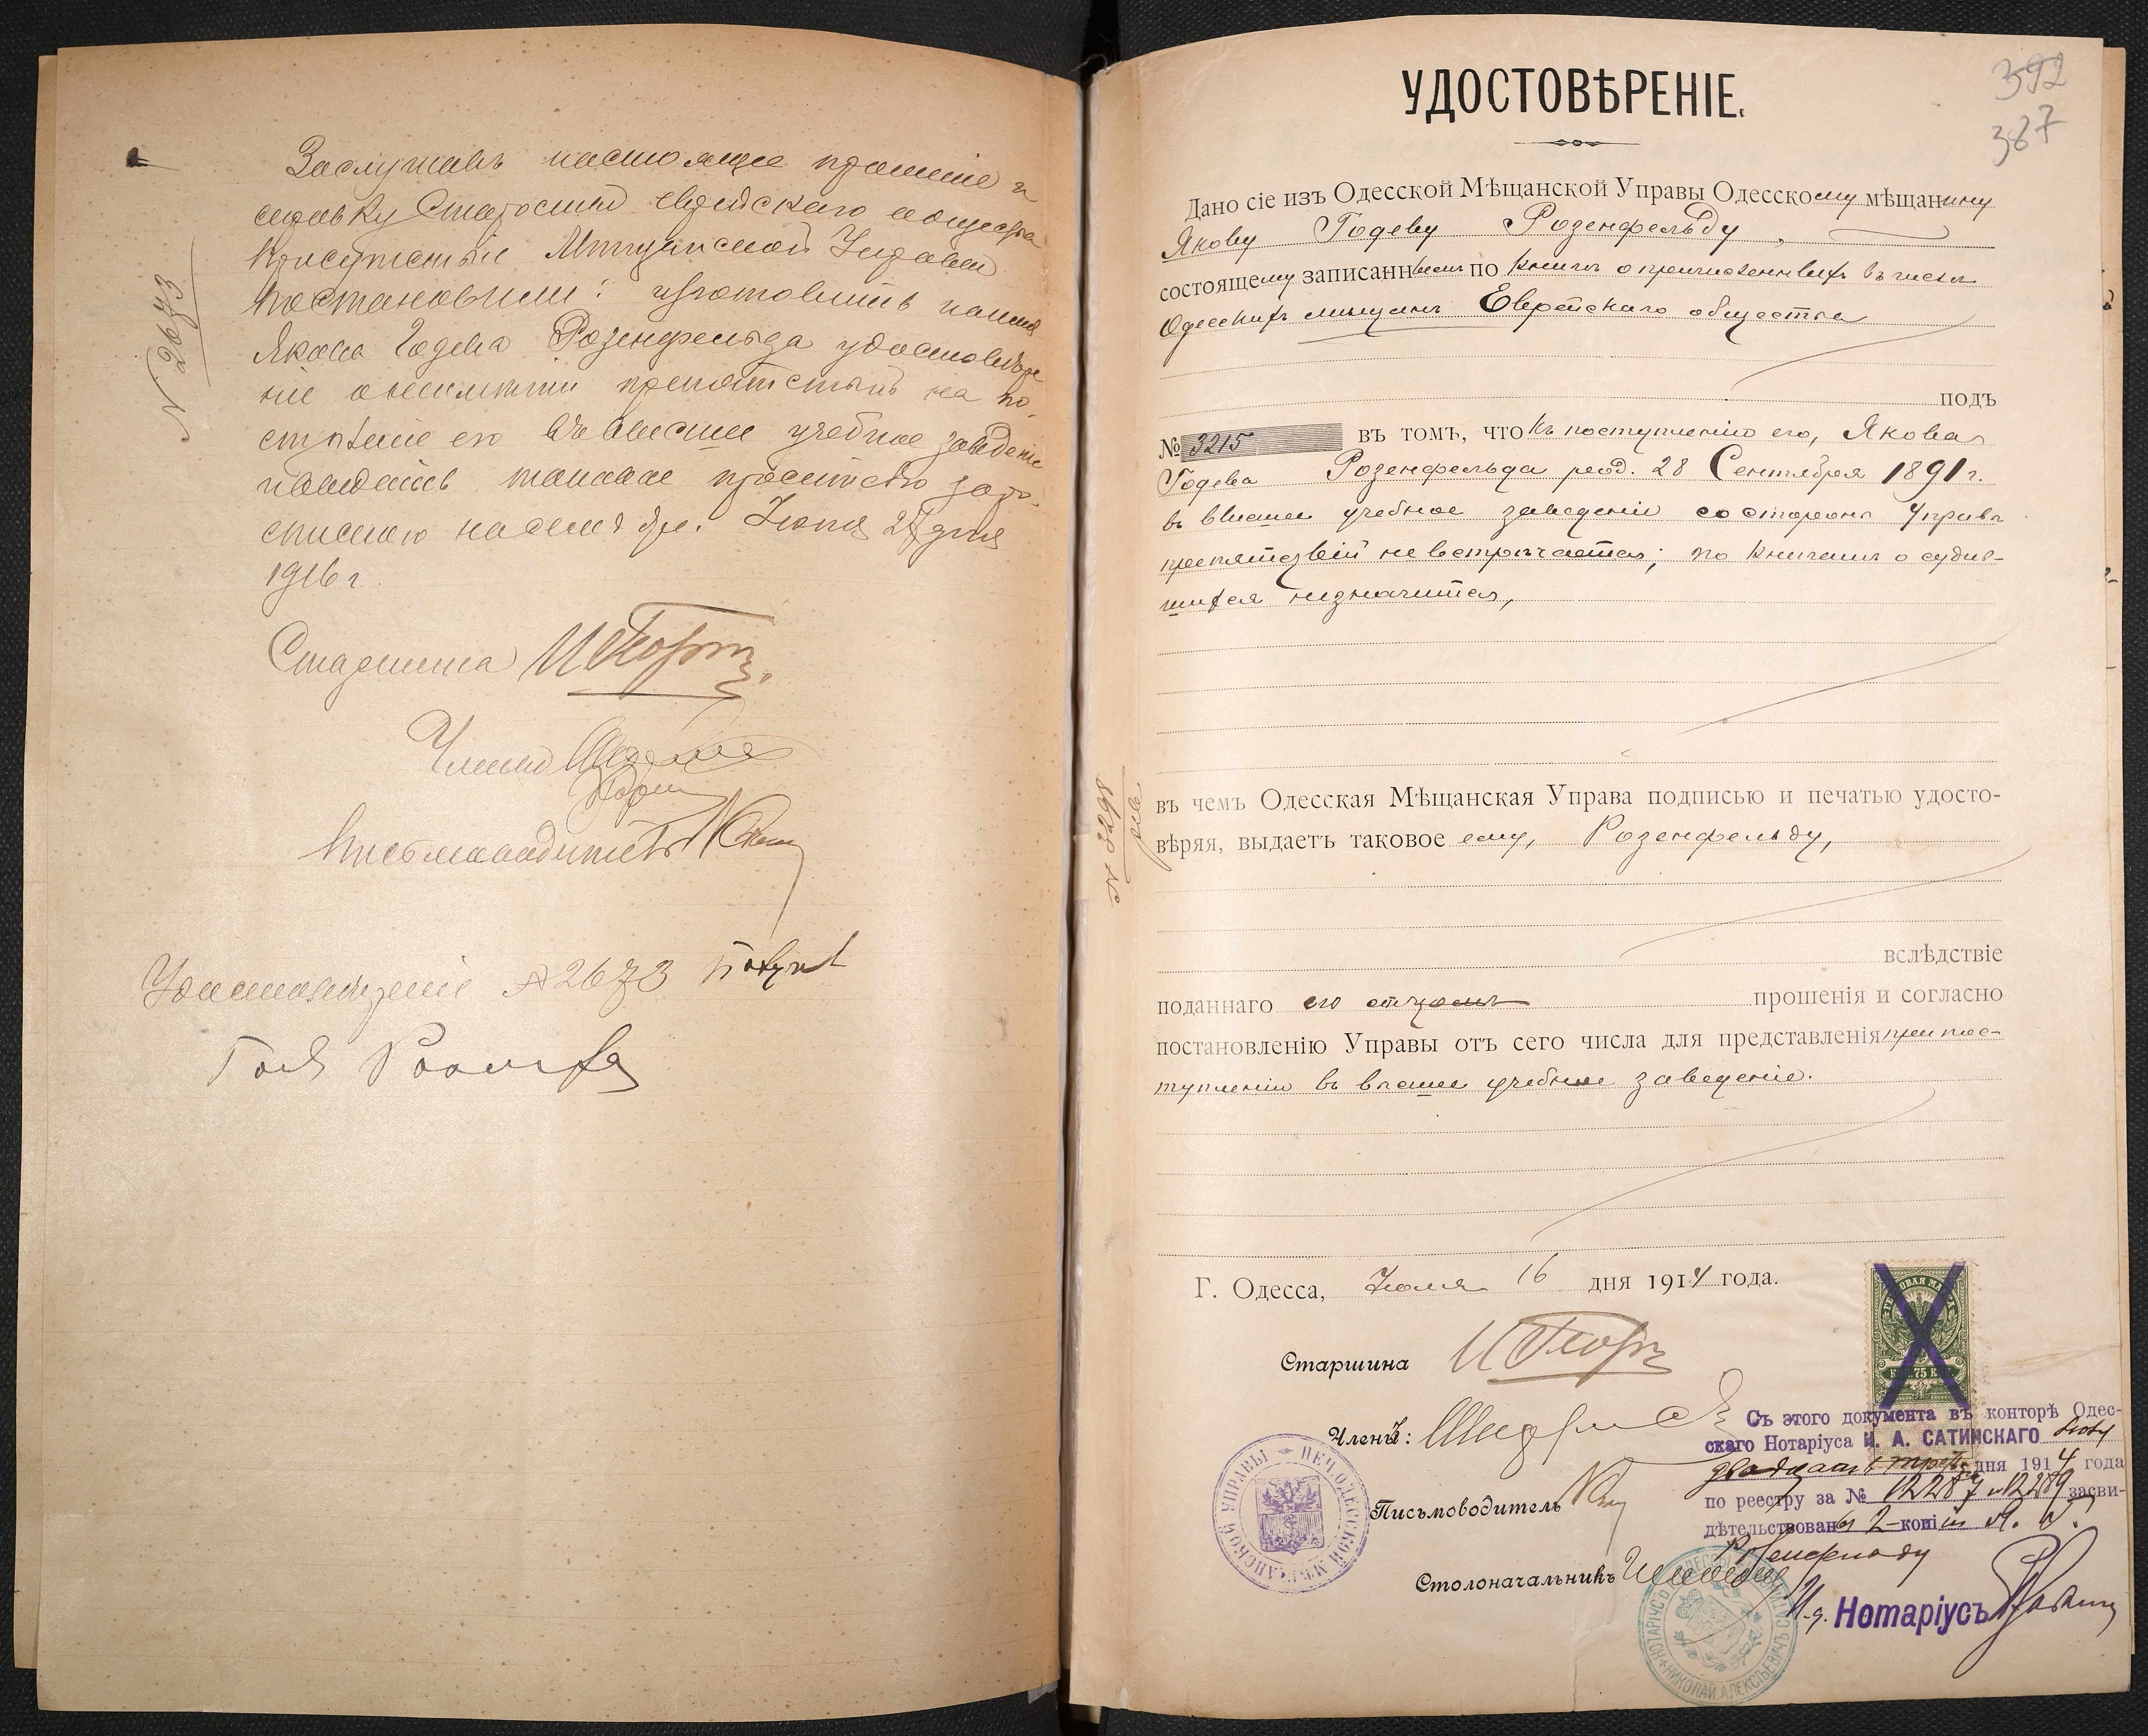 Заслушавъ настоящее прошеніе и
справку Старосты еврейскаго общества
присутствіе Мѣщанской Управы
постановили: изготовить на имя
Якова Годева Розенфельда удостовѣре
ніе о неимѣніи препятствій на по
ступленіе его въ высшее учебное заведеніе
и выдать таковое просителю подъ ро
списку на семъ же. Іюня дня
1916 г.
Старшина
Члены
Письмоводитель
№ 2673
Удостовѣреніе № 2673 получ
392
387
УДОСТОВѢРЕНІЕ.
Дано сіе изъ Одесской Мѣщанской Управы Одесскому мѣщанину
Якову Годеву Розенфельду,
состоящему записаннымъ по книгѣ о причисленныхъ въ число
Одесскихъ мѣщанъ Еврейскаго общества
подъ
№ 3215 въ томъ, что къ поступленію его, Якова
Годева Розенфельда род. 28 Сентября 1891 г.
въ высшее учебное заведеніе со стороны Управы
препятствій не встрѣчается; по книгамъ о судив-
шихся не значится,
въ чемъ Одесская Мѣщанская Управа подписью и печатью удосто-
вѣряя, выдаетъ таковое ему, Розенфельду,
вслѣдствіе
поданнаго его отцомъ прошенія и согласно
постановленію Управы отъ сего числа для представленія при пос-
тупленіи въ высшее учебное заведеніе.
Г. Одесса, Іюля 16 дня 1914 года.
Старшина
Члены:
Письмоводитель
Столоначальникъ
ГЕРБОВАЯ МАРКА
75 К
Съ этого документа въ конторѣ Одес-
скаго Нотаріуса Н. А. САТИНСКАГО Іюля
двадцать третьяго дня 1914 года
по реестру за № 12287 и 12289 засви-
дѣтельствованы 2 копіи
Розенфельду
И.д. Нотаріусъ
ПЕЧ. ОДЕССКОЙ МѢЩАНСКОЙ УПРАВЫ
НОТАРІУСЪ НИКОЛАЙ АЛЕКСѢЕВИЧЪ